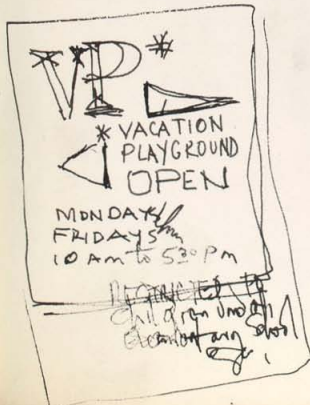 VP*
* VACATION
PLAYGROUND
OPEN
MONDAYS
FRIDAYS
10 AM to 530 PM
RESTRICTED to
Children under
Elementary School
age